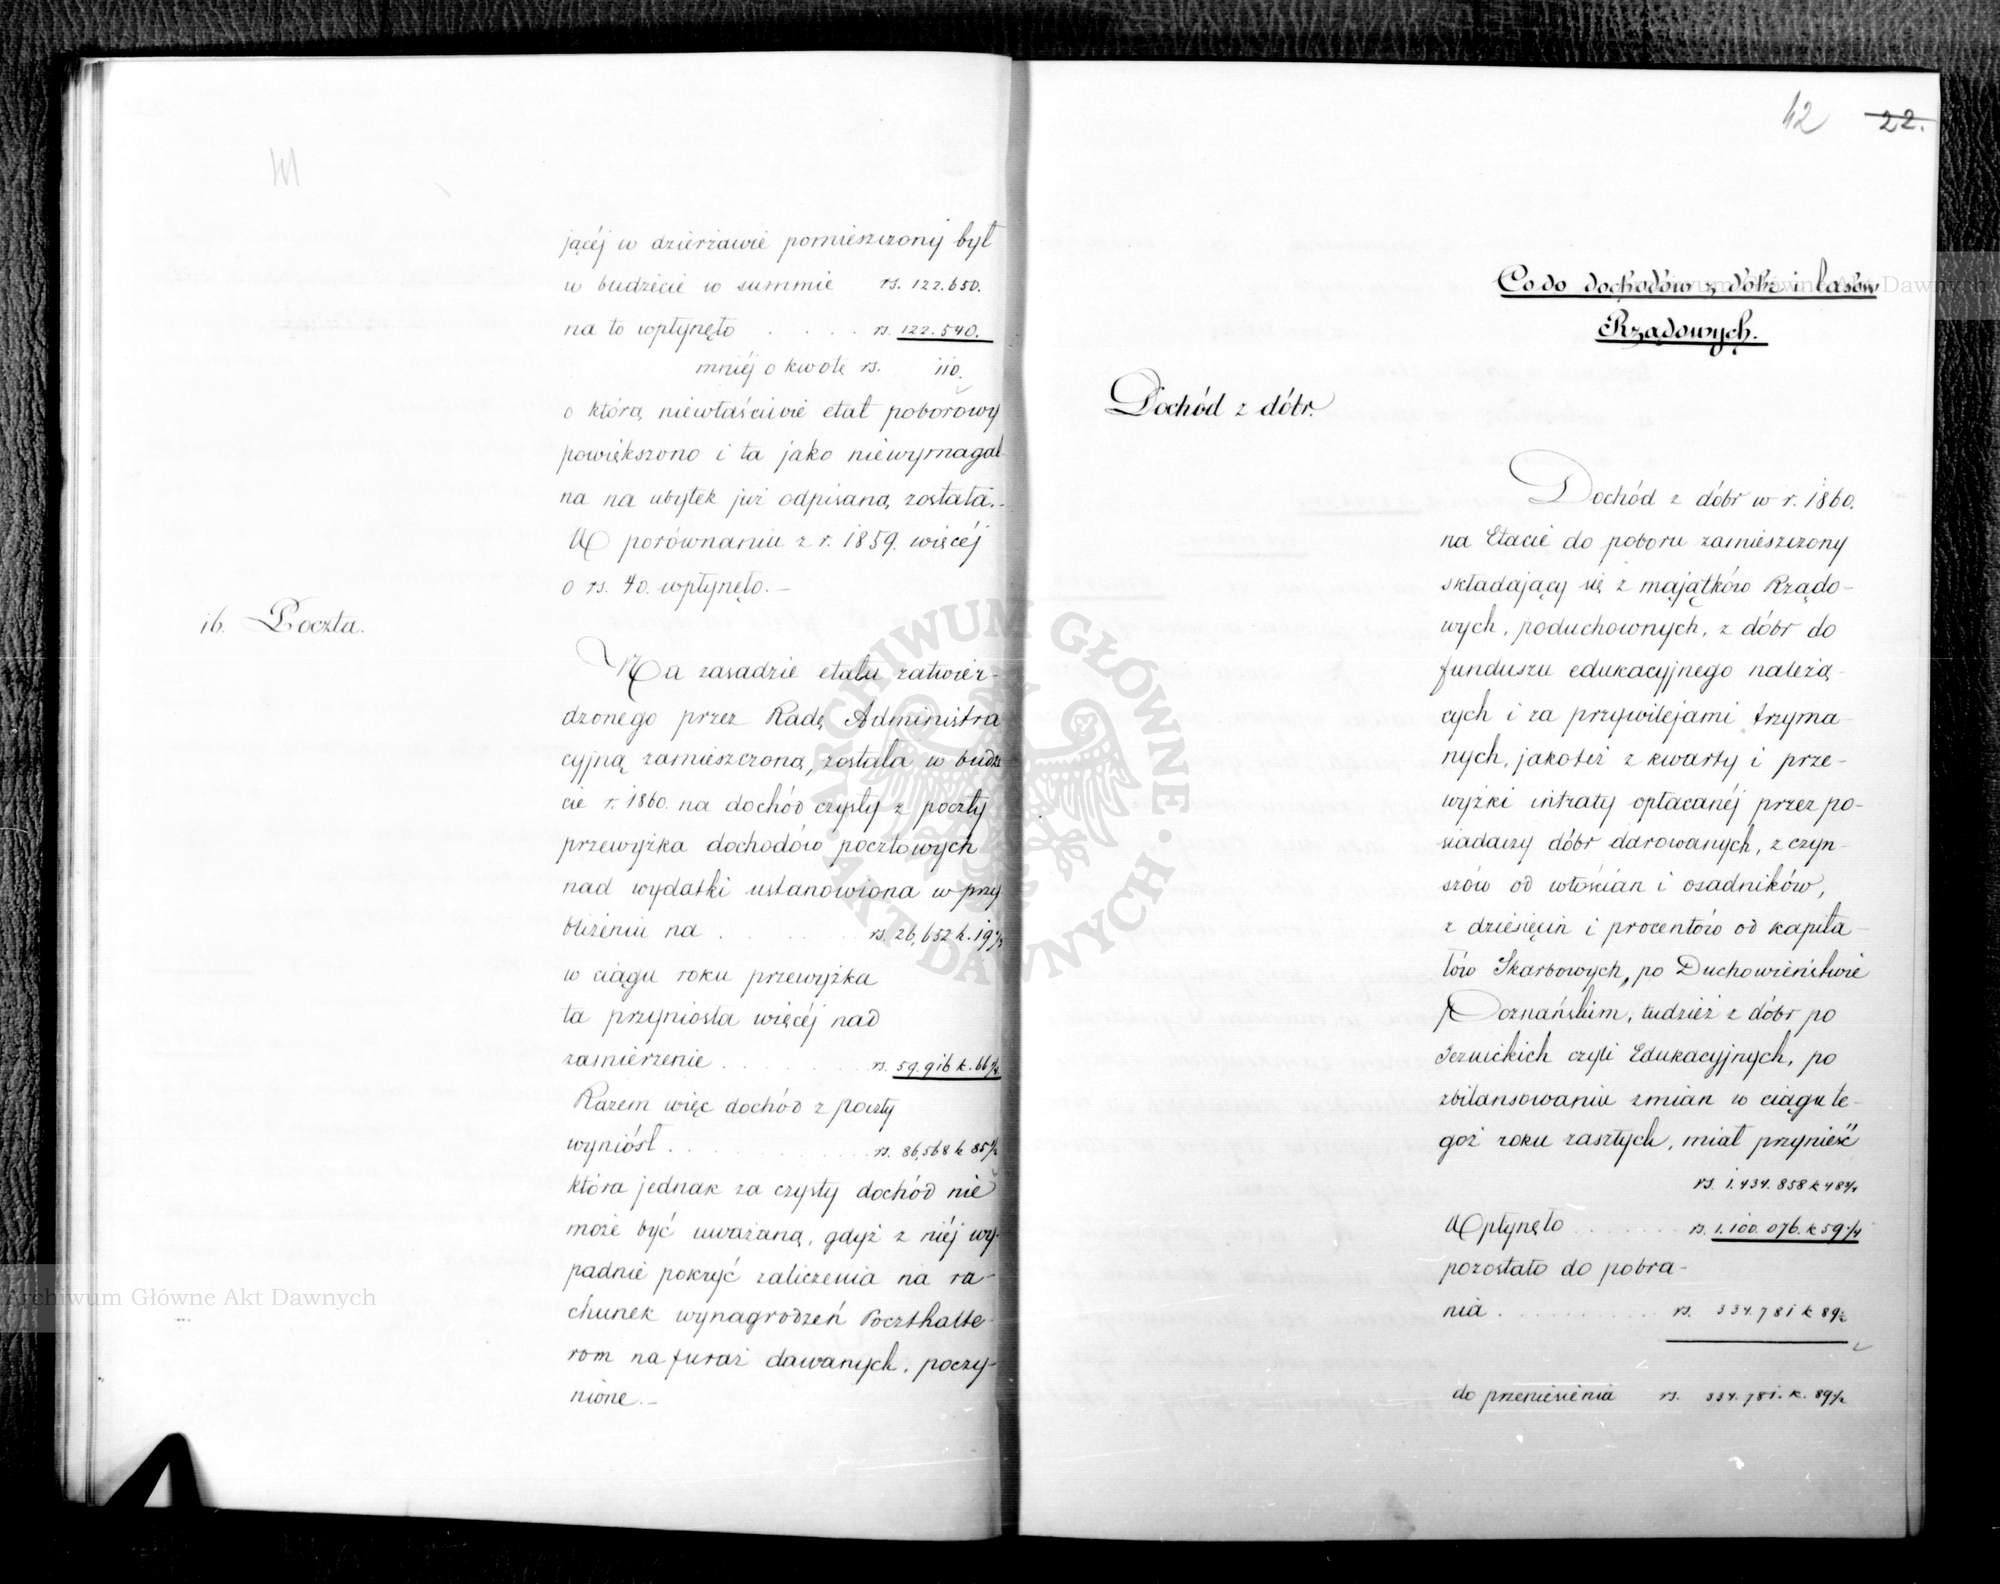 41
jącéj w dzierżawie pomieszczony był
w budżecie w summie rs. 122.650.
na to wpłynęło . . . . rs. 122.540.
mniéj o kwotę rs. 110.
o którą niewłaściwie etat poborowy
powiększono i ta jako niewymagal-
na na ubytek już odpisaną została.-
W porównaniu z r. 1859. więcéj
o rs. 40. wpłynęło.-
16. Poczta.
Na zasadzie etatu zatwier-
dzonego przez Radę Administra
cyjną zamieszczoną, została w budże
cie r. 1860. na dochód czysty z poczty
przewyżka dochodów pocztowych
nad wydatki ustanowiona w przy
bliżeniu na . . . . rs. 26,652 k. 19 1/2
w ciągu roku przewyżka
ta przyniosła więcéj nad
zamierzenie . . . . rs. 59.916 k. 66
Razem więc dochód z poczty
wyniósł . . . . rs. 86,568 k 85 1/2
która jednak za czysty dochód nie
może być uważaną, gdyż z niéj wy-
padnie pokryć zaliczenia na ra-
chunek wynagrodzeń Poczthalte-
rom na furaż dawanych, poczy-
nione.-
42 22.
Co do dochodów z dóbr i lasów
Rządowych.
Dochód z dóbr.
Dochód z dóbr w r. 1860.
na Etacie do poboru zamieszczony
składający się z majątków Rządo-
wych, poduchownych, z dóbr do
funduszu edukacyjnego należą-
cych i za przywilejami trzyma-
nych, jakoteż z kwarty i prze-
wyżki intraty opłacanéj przez po-
siadaczy dóbr darowanych, z czyn-
szów od włościan i osadników,
z dziesięcin i procentów od kapita-
łów Skarbowych, po Duchowieństwie
Poznańskim, tudzież z dóbr po
Jezuickich czyli Edukacyjnych, po
zbilansowaniu zmian w ciągu te-
goż roku zaszłych, miał przynieść
rs. 1.434.858 k 48 3/4
Wpłynęło . . . . rs. 1.100.076. k 59 1/4
pozostało do pobra-
nia . . . . rs. 334.781 k 89 1/2
do przeniesienia rs. 334.781. k. 89 1/2
ARCHIWUM GŁÓWNE
AKT DAWNYCH
Archiwum Główne Akt Dawnych
Archiwum Główne Akt Dawnych